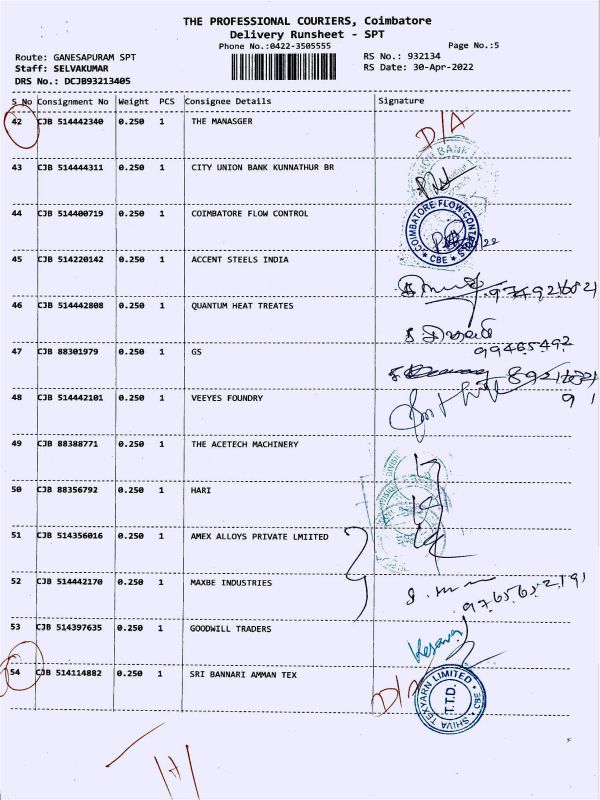 THE PROFESSIONAL COURIERS, Coimbatore
Delivery Runsheet - SPT
Phone No.:0422-3505555
Page No.:5
Route: GANESAPURAM SPT
Staff: SELVAKUMAR
DRS No.: DCJB93213405
RS No.: 932134
RS Date: 30-Apr-2022
S No Consignment No Weight PCS Consignee Details Signature
42 CJB 514442340 0.250 1 THE MANASGER D/A
43 CJB 514444311 0.250 1 CITY UNION BANK KUNNATHUR BR
44 CJB 514400719 0.250 1 COIMBATORE FLOW CONTROL COIMBATORE FLOW CONTROL CBE
45 CJB 514220142 0.250 1 ACCENT STEELS INDIA
46 CJB 514442808 0.250 1 QUANTUM HEAT TREATES
47 CJB 88301979 0.250 1 GS
48 CJB 514442101 0.250 1 VEEYES FOUNDRY
49 CJB 88388771 0.250 1 THE ACETECH MACHINERY
50 CJB 88356792 0.250 1 HARI
51 CJB 514356016 0.250 1 AMEX ALLOYS PRIVATE LMIITED
52 CJB 514442170 0.250 1 MAXBE INDUSTRIES
53 CJB 514397635 0.250 1 GOODWILL TRADERS
54 CJB 514114882 0.250 1 SRI BANNARI AMMAN TEX D/A SHIVA TEXYARN LIMITED T.T.D.